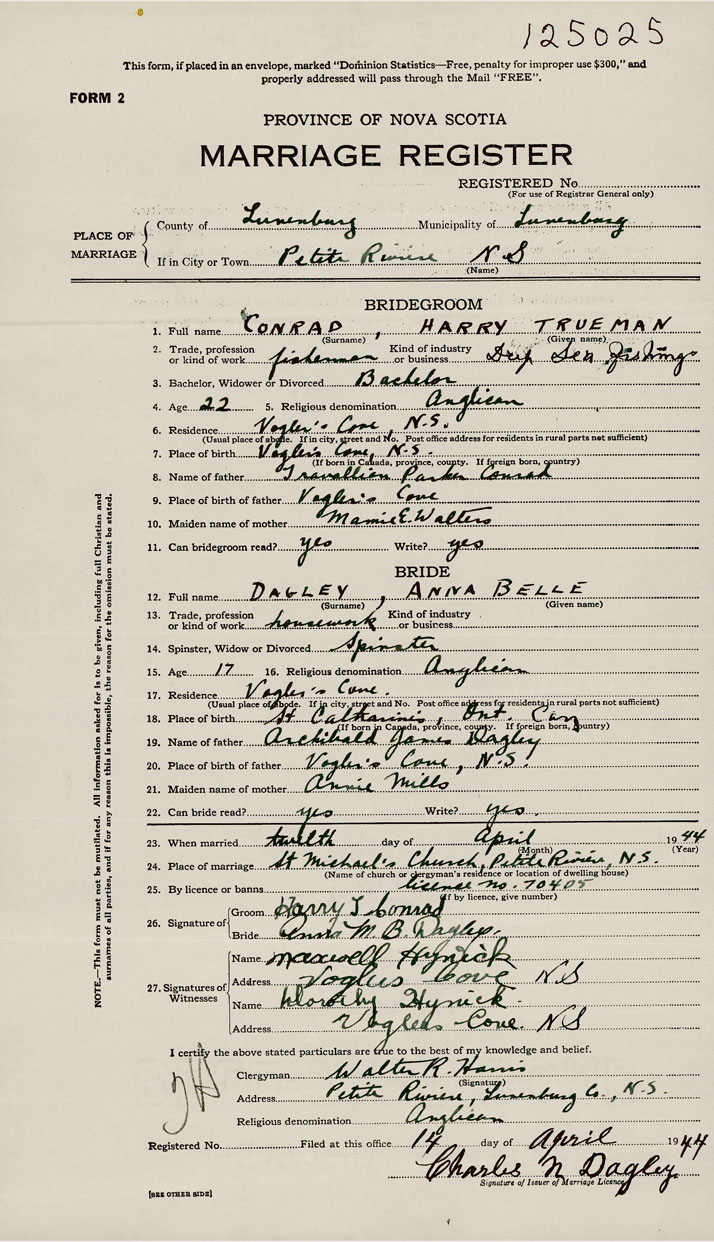 125025
This form, if placed in an envelope, marked "Dominion Statistics—Free, penalty for improper use $300," and
properly addressed will pass through the Mail "FREE".
FORM 2
PROVINCE OF NOVA SCOTIA
MARRIAGE REGISTER
REGISTERED No.
(For use of Registrar General only)
PLACE OF MARRIAGE
County of Lunenburg Municipality of Lunenburg
If in City or Town Petite Riviere N S
(Name)
BRIDEGROOM
1. Full name CONRAD, HARRY TRUEMAN
(Surname) (Given name)
2. Trade, profession or kind of work fisherman Kind of industry or business Deep Sea fishing
3. Bachelor, Widower or Divorced Bachelor
4. Age 22 5. Religious denomination Anglican
6. Residence Vogler's Cove, N.S.
(Usual place of abode. If in city, street and No. Post office address for residents in rural parts not sufficient)
7. Place of birth Vogler's Cove, N.S.
(If born in Canada, province, county. If foreign born, country)
8. Name of father Parker Conrad
9. Place of birth of father Vogler's Cove
10. Maiden name of mother Mamie E. Walters
11. Can bridegroom read? yes Write? yes
BRIDE
12. Full name DAGLEY, ANNA BELLE
(Surname) (Given name)
13. Trade, profession or kind of work housework Kind of industry or business
14. Spinster, Widow or Divorced Spinster
15. Age 17 16. Religious denomination Anglican
17. Residence Vogler's Cove.
(Usual place of abode. If in city, street and No. Post office address for residents in rural parts not sufficient)
18. Place of birth St Catharines, Ont. Can
(If born in Canada, province, county. If foreign born, country)
19. Name of father Archibald James Dagley
20. Place of birth of father Vogler's Cove, N.S.
21. Maiden name of mother Annie Mills
22. Can bride read? yes Write? yes.
23. When married twelth day of April 1944
(Month) (Year)
24. Place of marriage St Michael's Church, Petite Riviere, N.S.
(Name of church or clergyman's residence or location of dwelling house)
25. By licence or banns license no. 70405
(If by licence, give number)
26. Signature of
Groom Harry T Conrad
Bride Anna M. B. Dagley.
27. Signatures of Witnesses
Name Maxwell Hynick
Address Voglers Cove N S
Name Dorothy Hynick.
Address Voglers Cove. N S
I certify the above stated particulars are true to the best of my knowledge and belief.
Clergyman Walter R. Harris
(Signature)
Address Petite Riviere, Lunenburg Co., N.S.
Religious denomination Anglican
Registered No. Filed at this office 14 day of April 1944
Charles N Dagley
Signature of Issuer of Marriage Licence
[SEE OTHER SIDE]
NOTE.—This form must not be mutilated. All information asked for is to be given, including full Christian and
surnames of all parties, and if for any reason this is impossible, the reason for the omission must be stated.